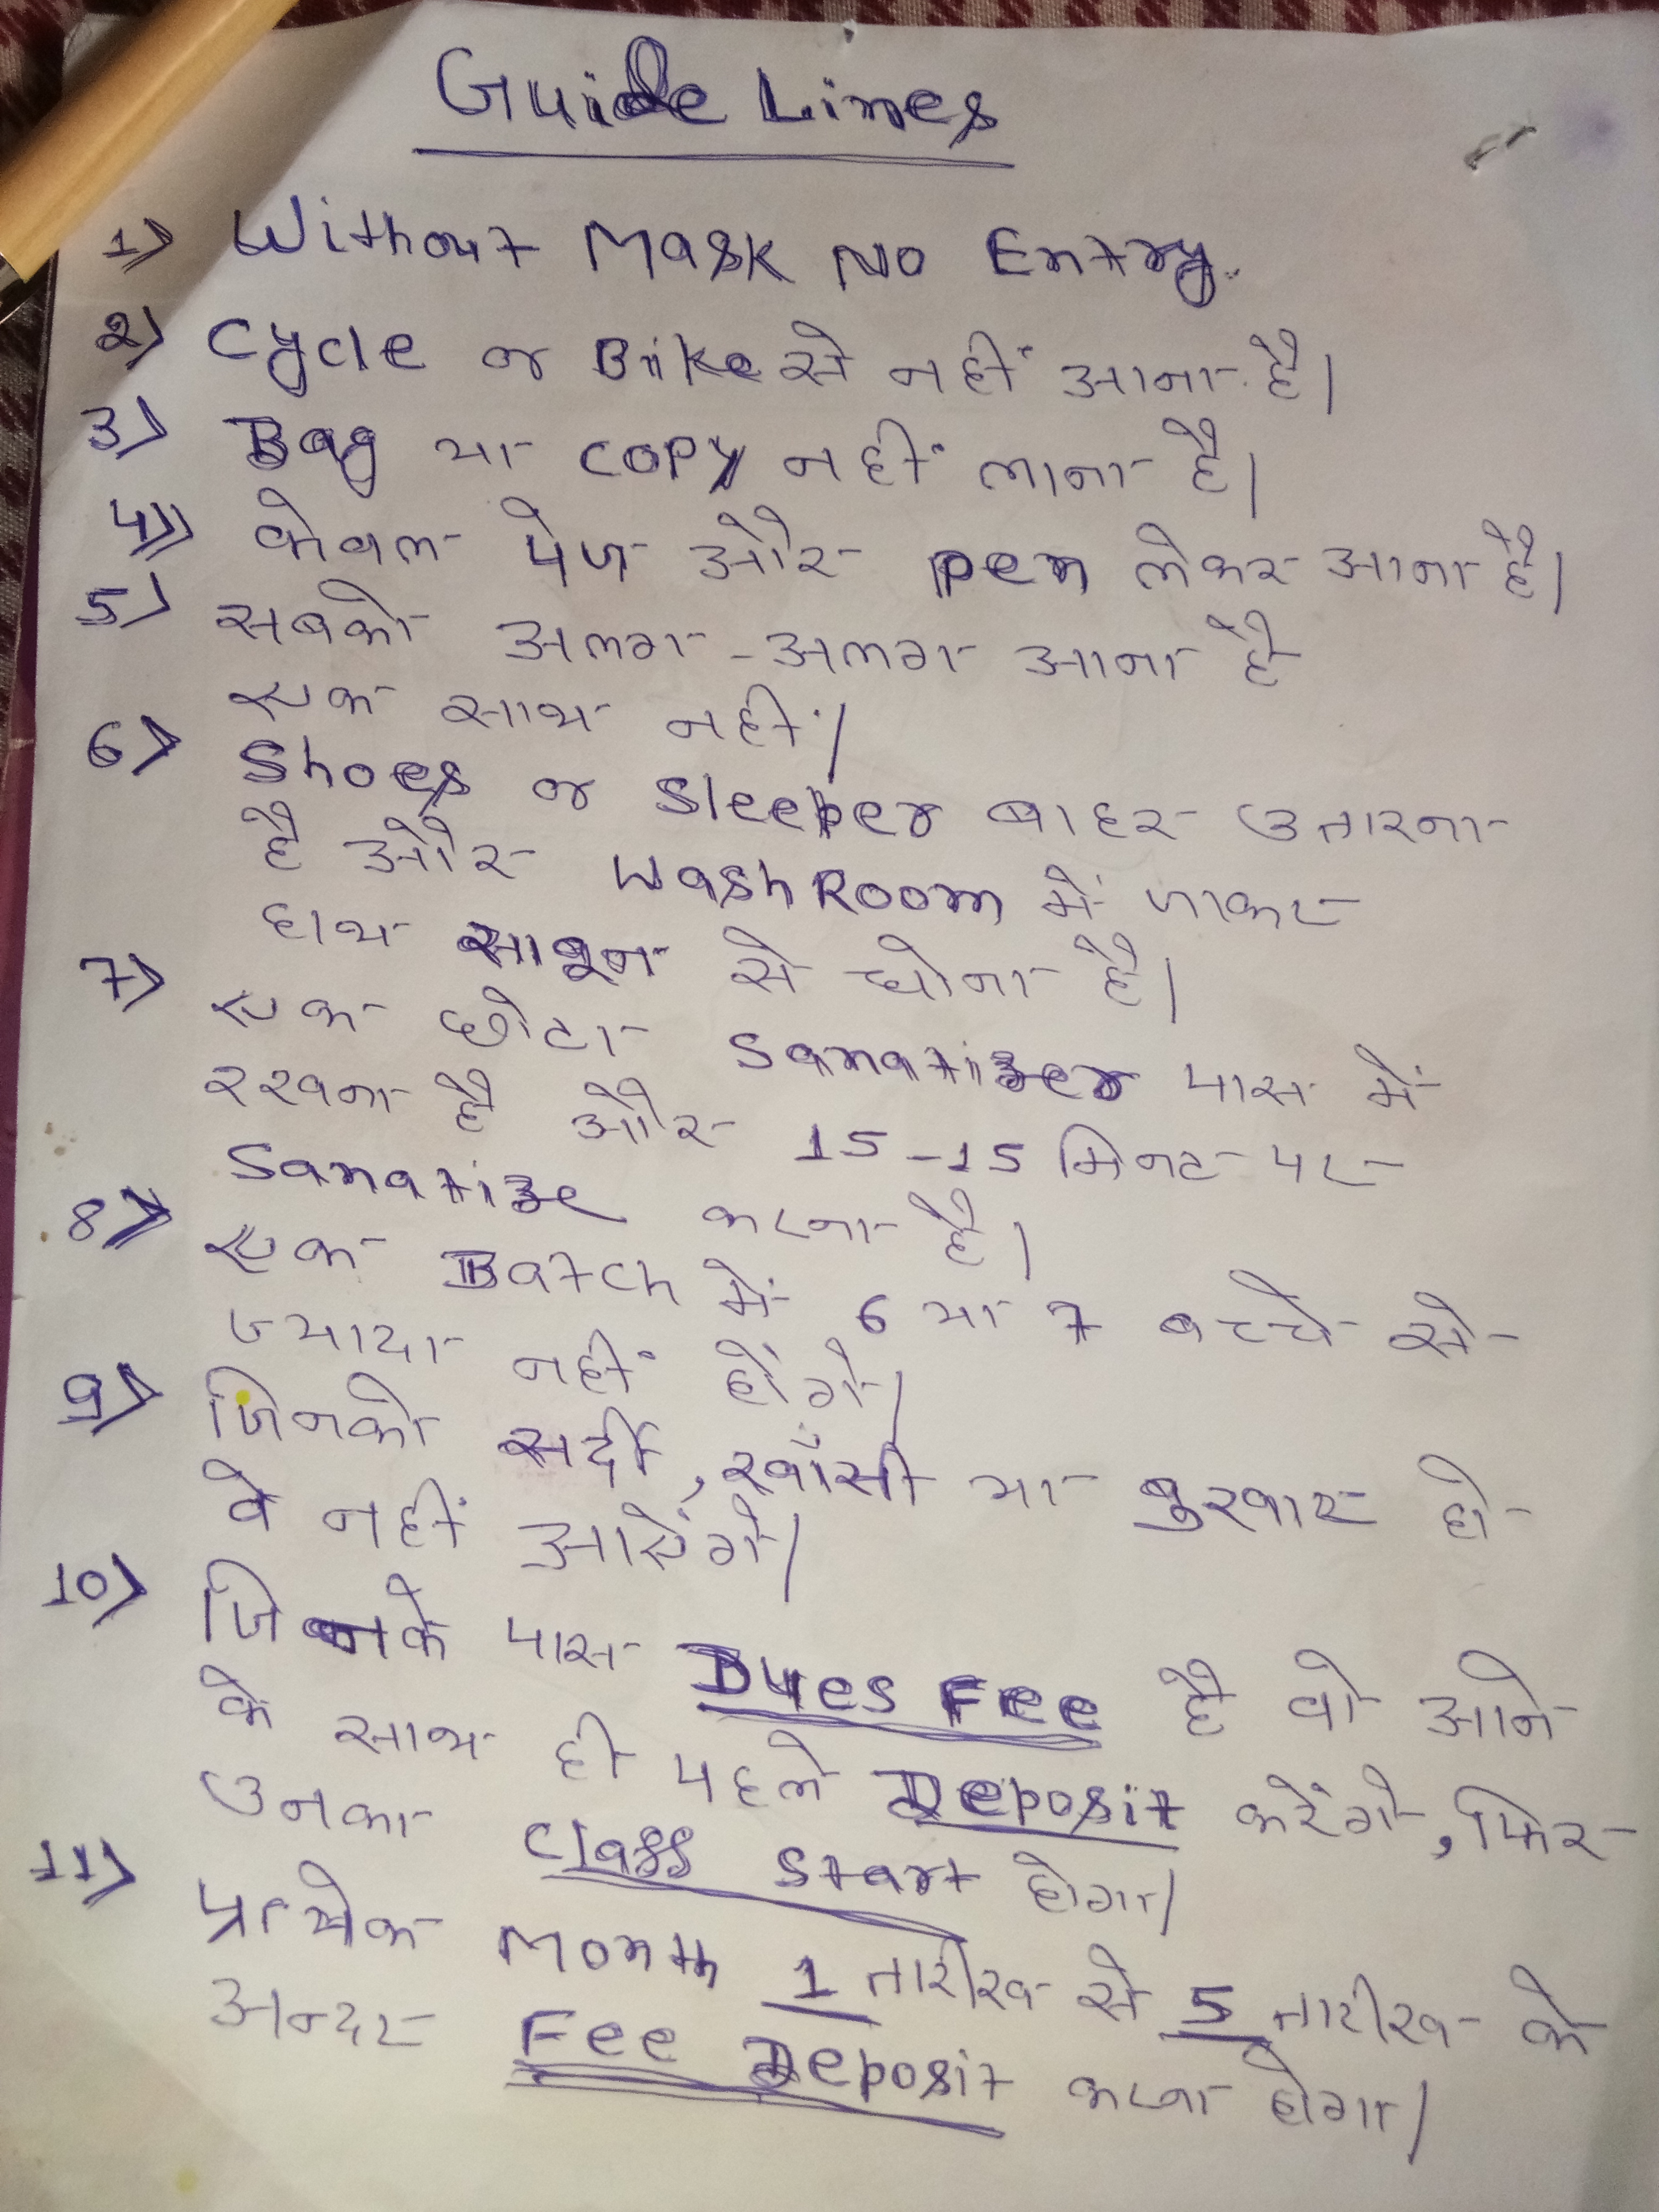 Guide Lines
1) Without Mask No Entry.
2) Cycle or Bike से नहीं आना है।
3) Bag या COPY नहीं लाना है।
4) केवल पेज और pen लेकर आना है।
5) सबको अलग-अलग आना है
एक साथ नहीं।
6) Shoes or Sleeper बाहर उतारना
है और WashRoom में जाकर
हाथ साबुन से धोना है।
7) एक छोटा Sanatizer पास में
रखना है और 15-15 मिनट पर
Sanatize करना है।
8) एक Batch में 6 या 7 बच्चे से
ज्यादा नहीं होंगे।
9) जिनको सर्दी, खाँसी या बुखार हो
वे नहीं आएंगे।
10) जिनके पास Dues Fee है वो आने
के साथ ही पहले Deposit करेंगे, फिर
उनका Class Start होगा।
11) प्रत्येक Month 1 तारीख से 5 तारीख के
अन्दर Fee Deposit करना होगा।